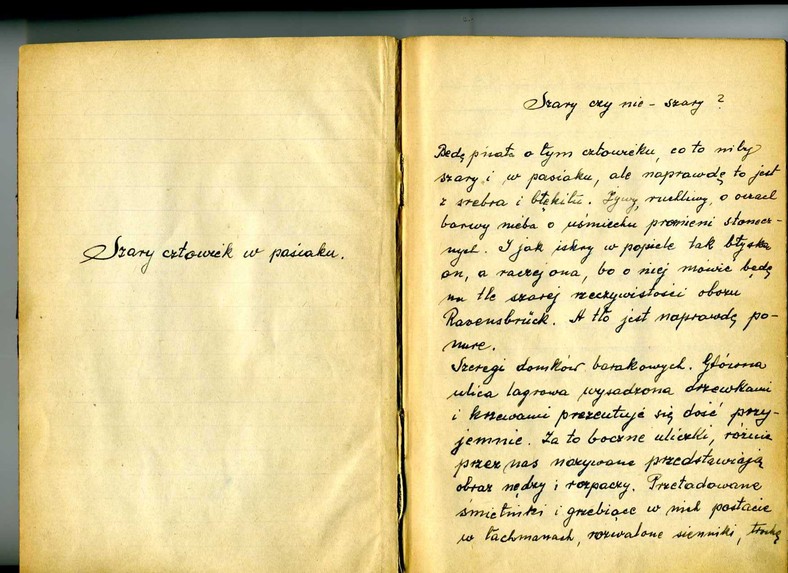 Szary człowiek w pasiaku.
Szary czy nie - szary ?
Będę pisała o tym człowieku, co to niby
szary i w pasiaku, ale naprawdę to jest
z srebra i błękitu. Żywy, ruchliwy, o oczach
barwy nieba o uśmiechu promieni słonecz-
nych. I jak iskry w popiele tak błyska
on, a raczej ona, bo o niej mówić będę
na tle szarej rzeczywistości obozu
Ravensbrück. A tło jest naprawdę po-
nure.
Szeregi domków barakowych. Główna
ulica lagrowa wysadzona drzewkami
i krzewami prezentuje się dość przy-
jemnie. Za to boczne uliczki, różnie
przez nas nazywane przedstawiają
obraz nędzy i rozpaczy. Przeładowane
śmietniki i grzebiące w nich postacie
w łachmanach, rozwalone sienniki,